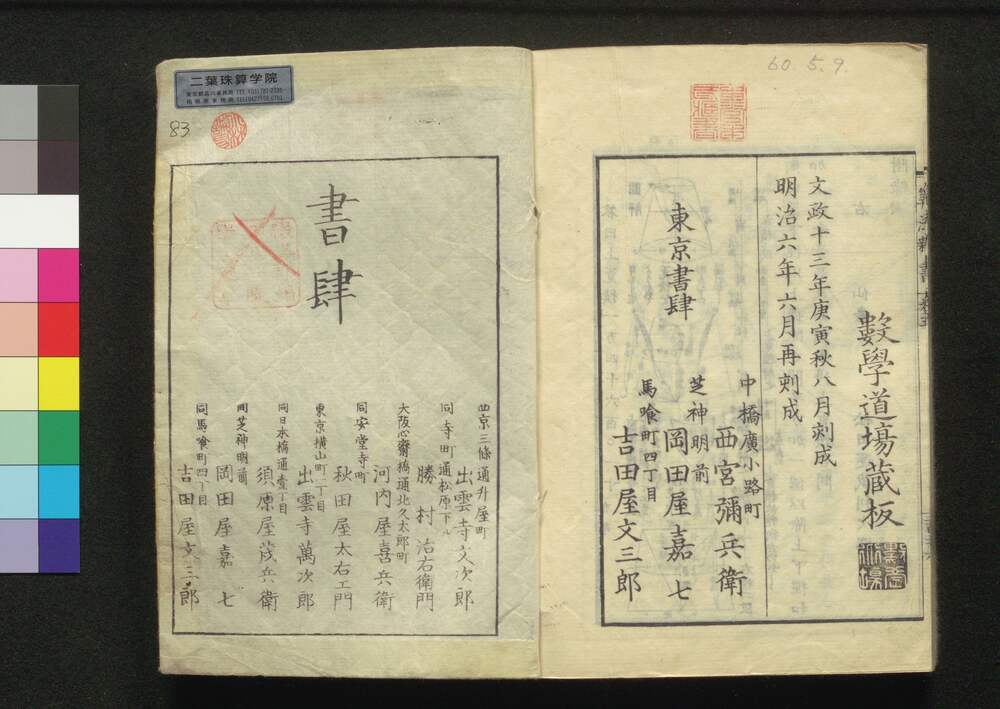 60.5.9.
數學道塲藏板
文政十三年庚寅秋八月刻成
明治六年六月再刻成
東京書肆
中橋廣小路町
西宮彌兵衛
芝神明前
岡田屋嘉七
馬喰町四丁目
吉田屋文三郎
二葉珠算学院
83
書肆
西京三條通升屋町
出雲寺文次郎
同寺町通松原下ル
勝村治右衛門
大阪心齋橋通北久太郎町
河内屋喜兵衛
同安堂寺町
秋田屋太右エ門
東京横山町一丁目
出雲寺萬次郎
同日本橋通壹丁目
須原屋茂兵衛
同芝神明前
岡田屋嘉七
同馬喰町四丁目
吉田屋文三郎